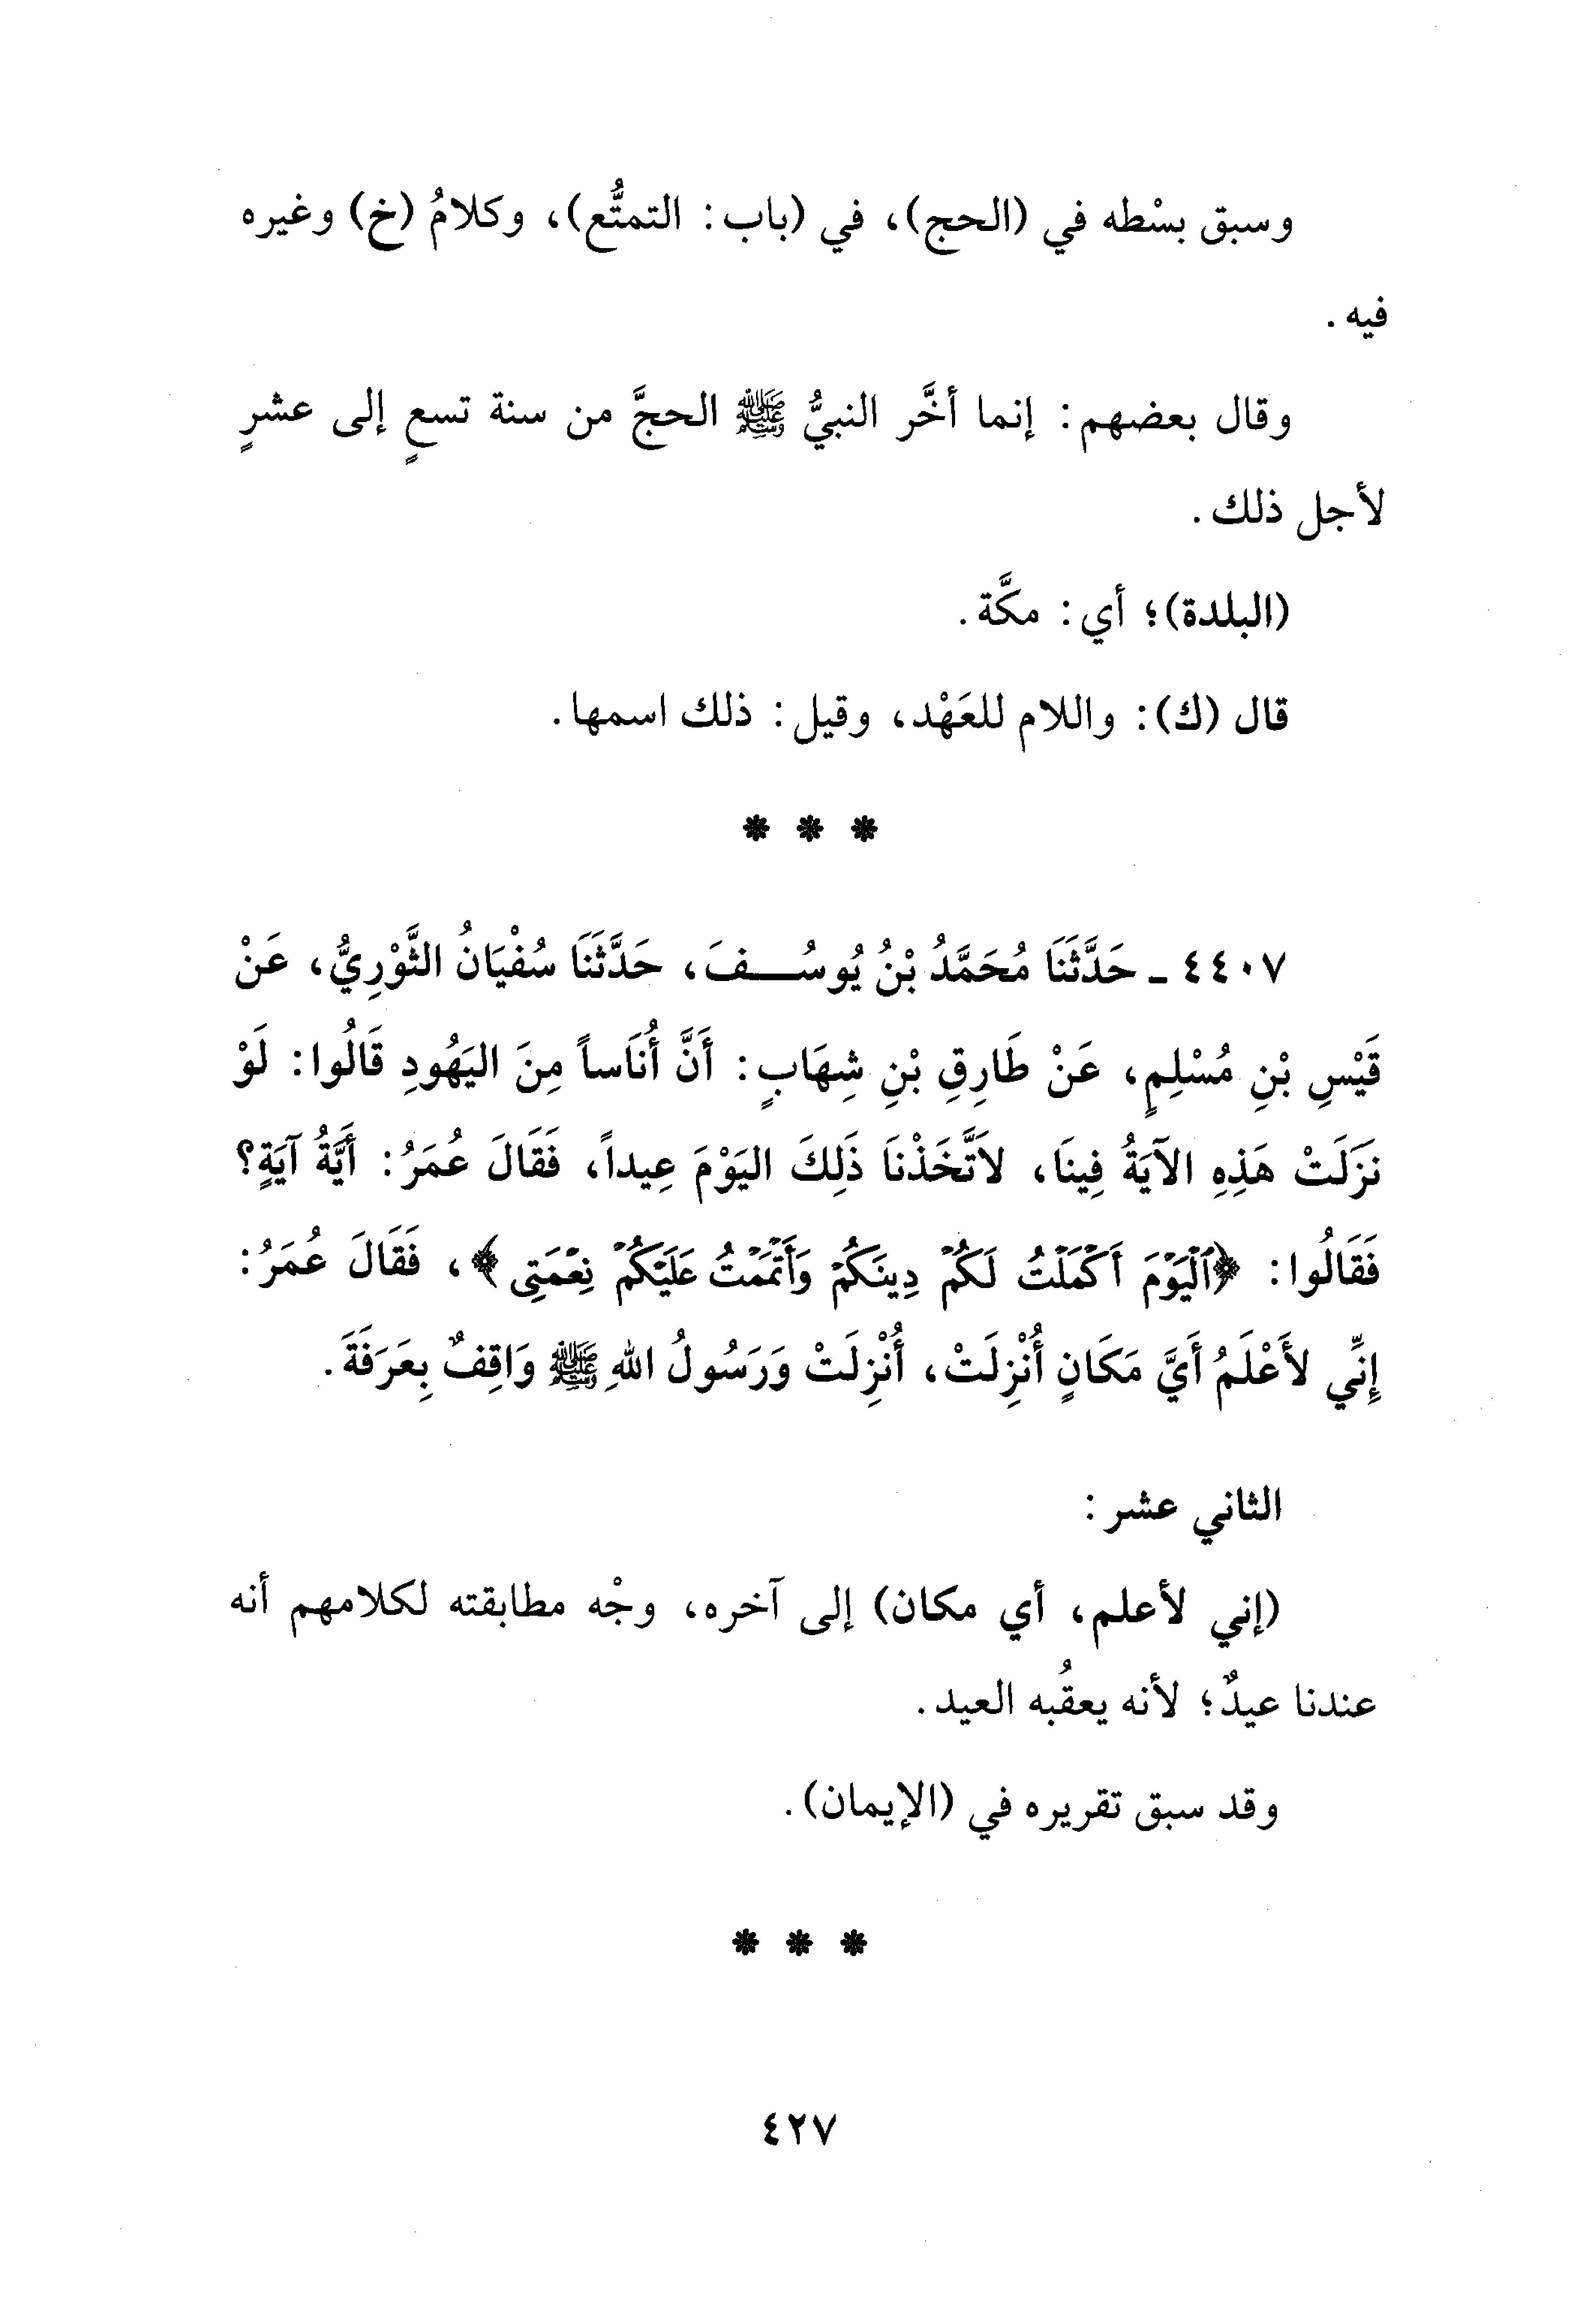 وسبق بسْطه في (الحج)، في (باب: التمتُّع)، وكلامُ (خ) وغيره
فيه.
وقال بعضهم: إنما أخَّر النبيُّ ﷺ الحجَّ من سنة تسعٍ إلى عشرٍ
لأجل ذلك.
(البلدة)؛ أي: مكَّة.
قال (ك): واللام للعَهْد، وقيل: ذلك اسمها.
* * *
٤٤٠٧ ـ حَدَّثَنَا مُحَمَّدُ بْنُ يُوسُـــفَ، حَدَّثَنَا سُفْيَانُ الثَّوْرِيُّ، عَنْ
قَيْسِ بْنِ مُسْلِمٍ، عَنْ طَارِقِ بْنِ شِهَابٍ: أَنَّ أُنَاساً مِنَ اليَهُودِ قَالُوا: لَوْ
نَزَلَتْ هَذِهِ الآيَةُ فِينَا، لاَتَّخَذْنَا ذَلِكَ اليَوْمَ عِيداً، فَقَالَ عُمَرُ: أَيَّةُ آيَةٍ؟
فَقَالُوا: ﴿ٱلۡيَوۡمَ أَكۡمَلۡتُ لَكُمۡ دِينَكُمۡ وَأَتۡمَمۡتُ عَلَيۡكُمۡ نِعۡمَتِى﴾، فَقَالَ عُمَرُ:
إِنِّي لأَعْلَمُ أَيَّ مَكَانٍ أُنْزِلَتْ، أُنْزِلَتْ وَرَسُولُ اللهِ ﷺ وَاقِفٌ بِعَرَفَةَ.
الثاني عشر:
(إني لأعلم، أي مكان) إلى آخره، وجْه مطابقته لكلامهم أنه
عندنا عيدٌ؛ لأنه يعقُبه العيد.
وقد سبق تقريره في (الإيمان).
* * *
٤٢٧